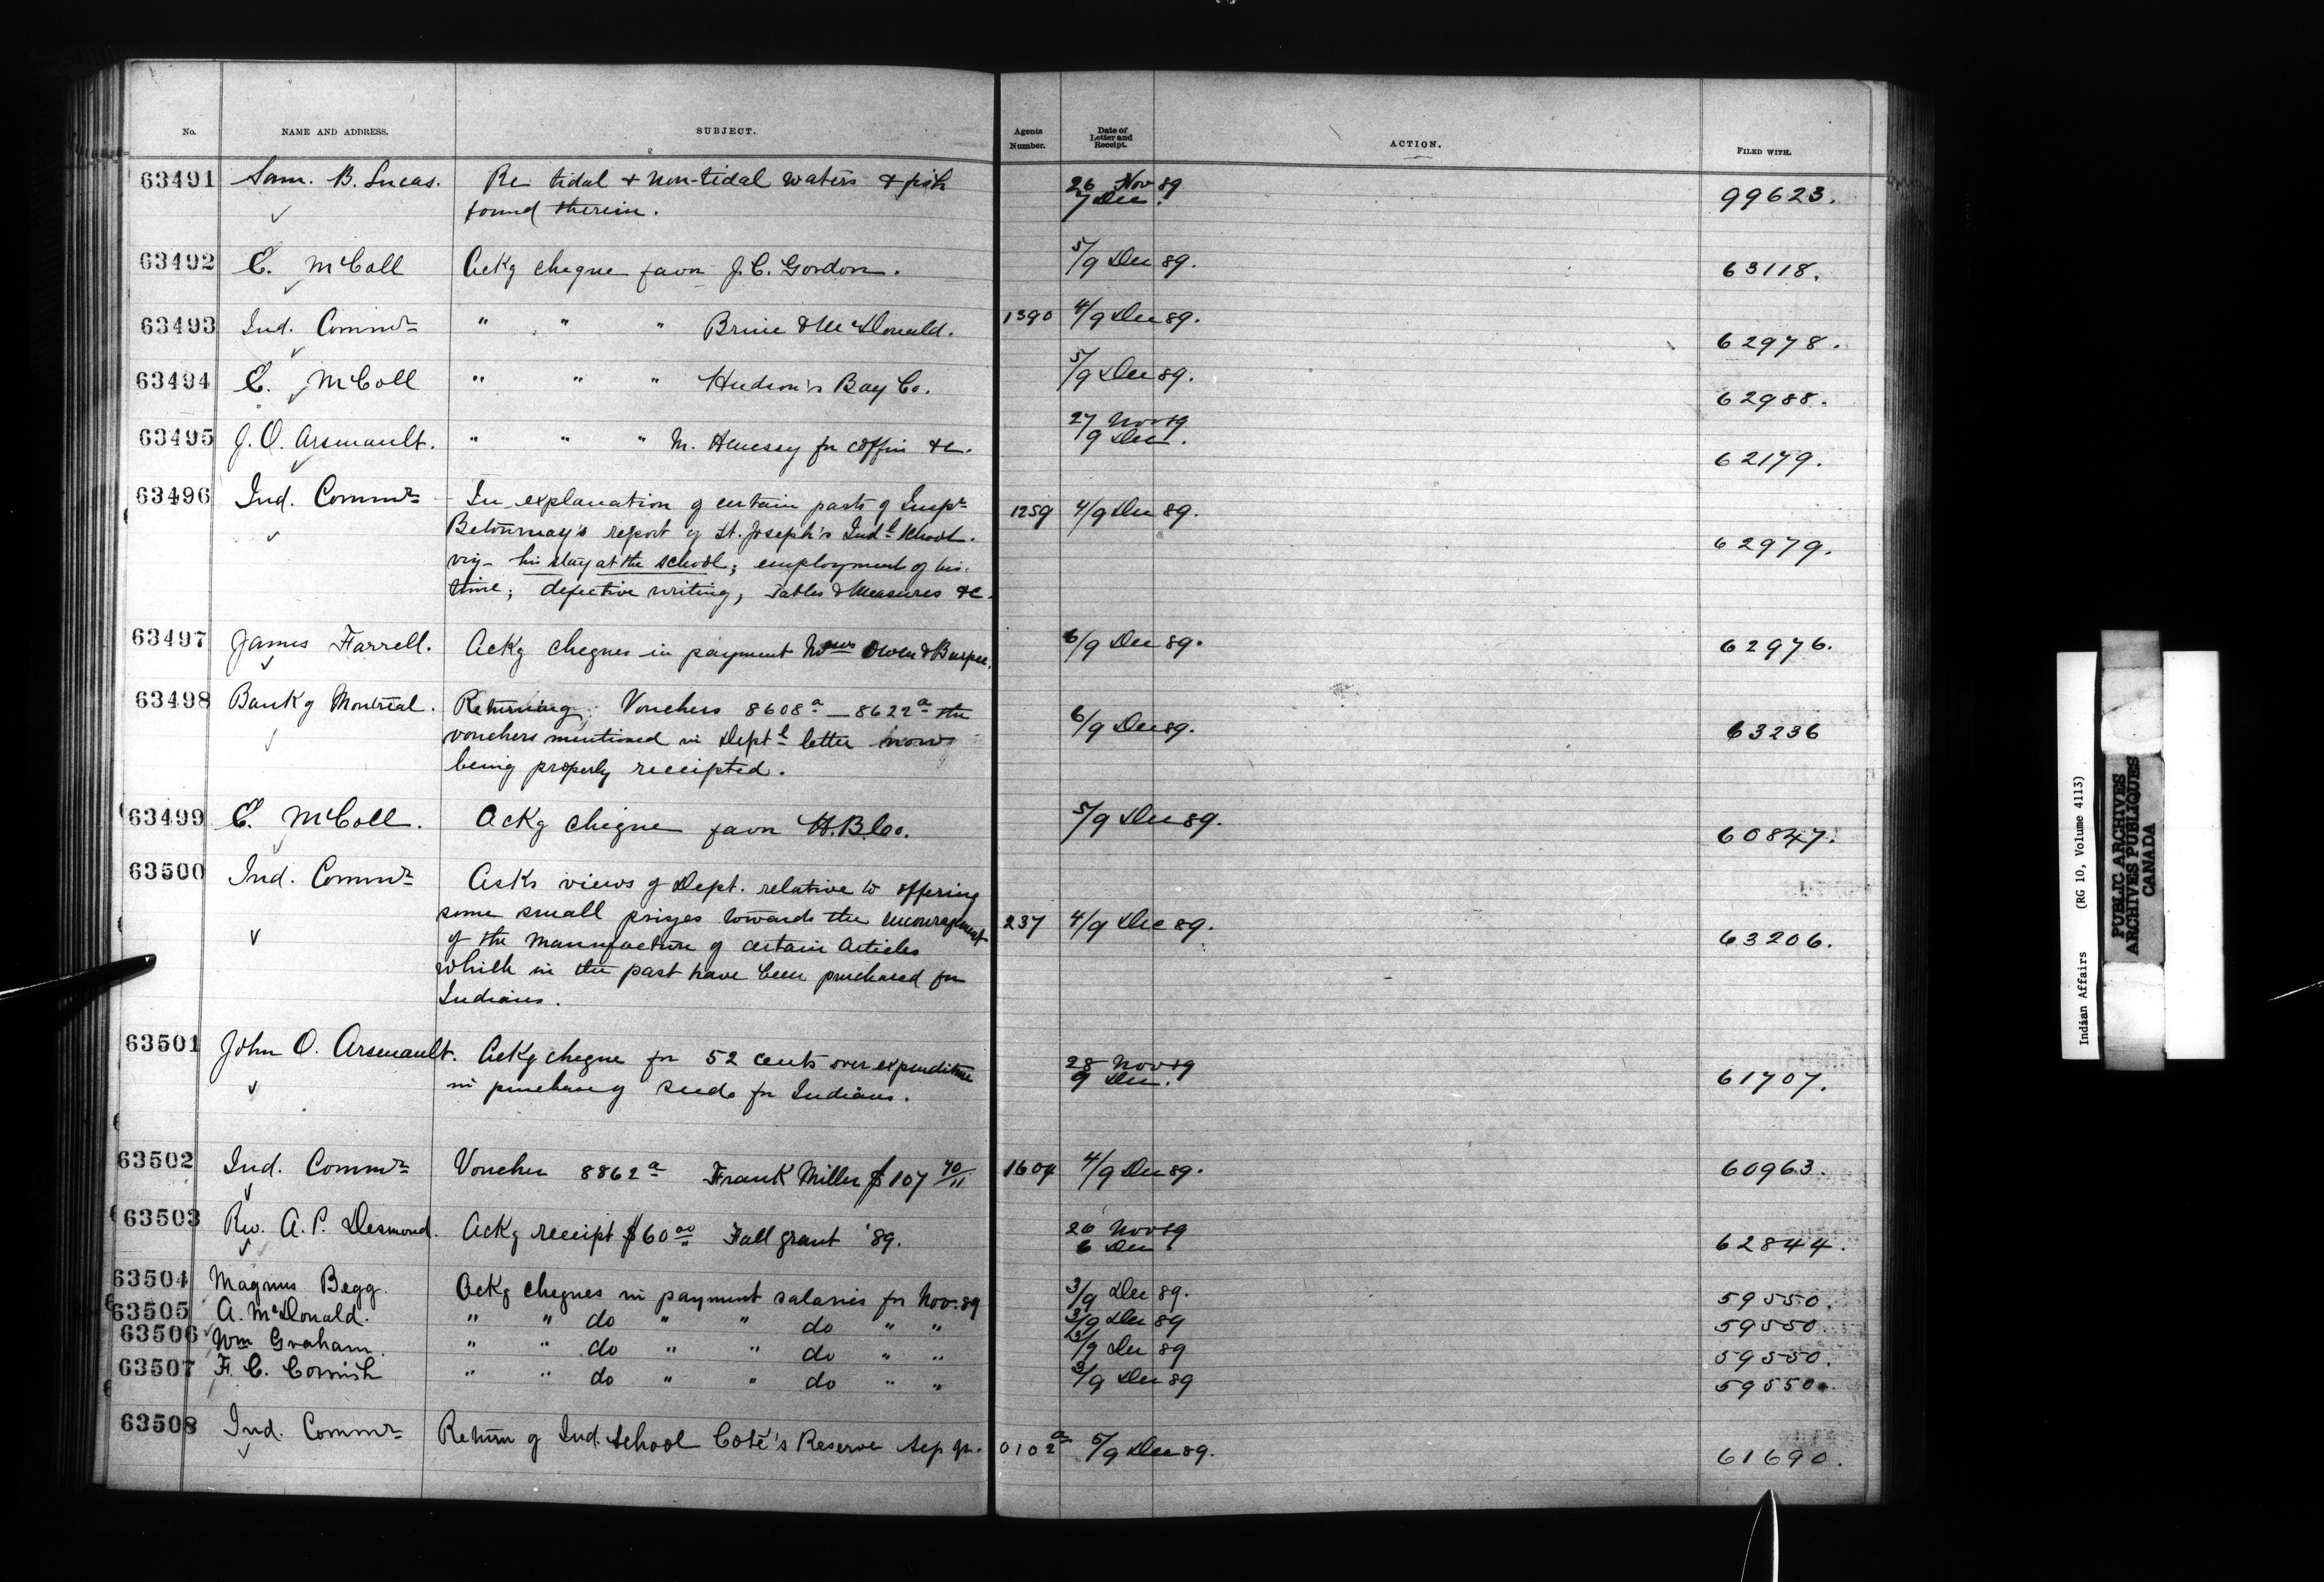 No. NAME AND ADDRESS. SUBJECT. Agents Number. Date of Letter and Receipt. ACTION. FILED WITH.
63491 Sam. B. Lucas. Re tidal & non-tidal waters & fish 26 Nov 89 99623.
found therein. 7 Dec.
63492 E. McColl Ackg cheque favr J.C. Gordon. 5/9 Dec 89. 63118.
63493 Ind. Commr " " " & McDonald. 1390 4/9 Dec 89. 62978.
63494 E. McColl " " " Hudson's Bay Co. 5/9 Dec 89. 62988.
63495 J.O. Arsenault. " " " M. Henessy for coffin &c. 27 Nov 89 62179.
9 Dec.
63496 Ind. Commr In explanation of certain parts of Inspr 1259 4/9 Dec 89. 62979.
Betournay's report of St. Joseph's Indl School.
viz- his stay at the school; employment of his
time; defective writing, Tables & Measures &c.
63497 James Farrell. Ackg cheques in payment Owen & Burpee. 6/9 Dec 89. 62976.
63498 Bank of Montreal. Returning Vouchers 8608a — 8622a the 6/9 Dec 89. 63236
vouchers mentioned in Deptl letter now
being properly receipted.
63499 E. McColl. Ackg cheque favr H.B.Co. 5/9 Dec 89. 60847.
63500 Ind. Commr Asks views of Dept. relative to offering
some small prizes towards the encouragement 237 4/9 Dec 89. 63206.
of the manufacture of certain articles
which in the past have been purchased for
Indians.
63501 John O. Arsenault. Ackg cheque for 52 cents over expenditure 28 Nov 89 61707.
in purchase of seeds for Indians. 9 Dec.
63502 Ind. Commr Voucher 8862a Frank Miller $107 70/11 1604 4/9 Dec 89. 60963.
63503 Rev. A.P. Desmond. Ackg receipt $60 00 Fall grant '89. 26 Nov 89 62844.
6 Dec
63504 Magnus Begg. Ackg cheques in payment salaries for Nov. 89 3/9 Dec 89. 59550.
63505 A. McDonald. " " do " " do " " 3/9 Dec 89 59550
63506 Wm Graham. " " do " " do " " 3/9 Dec 89 59550.
63507 F.C. Cornish " " do " " do " " 3/9 Dec 89 59550.
63508 Ind. Commr Return of Ind. School Coté's Reserve Sep qr. 0102a 5/9 Dec 89. 61690.
Indian Affairs (RG 10, Volume 4113)
PUBLIC ARCHIVES
ARCHIVES PUBLIQUES
CANADA